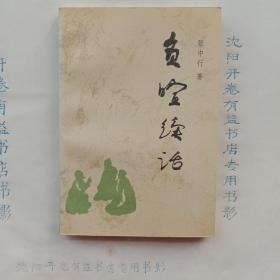 张中行 著
负暄续话
沈阳开卷有益书店专用书影
沈阳开卷有益书店专用书影